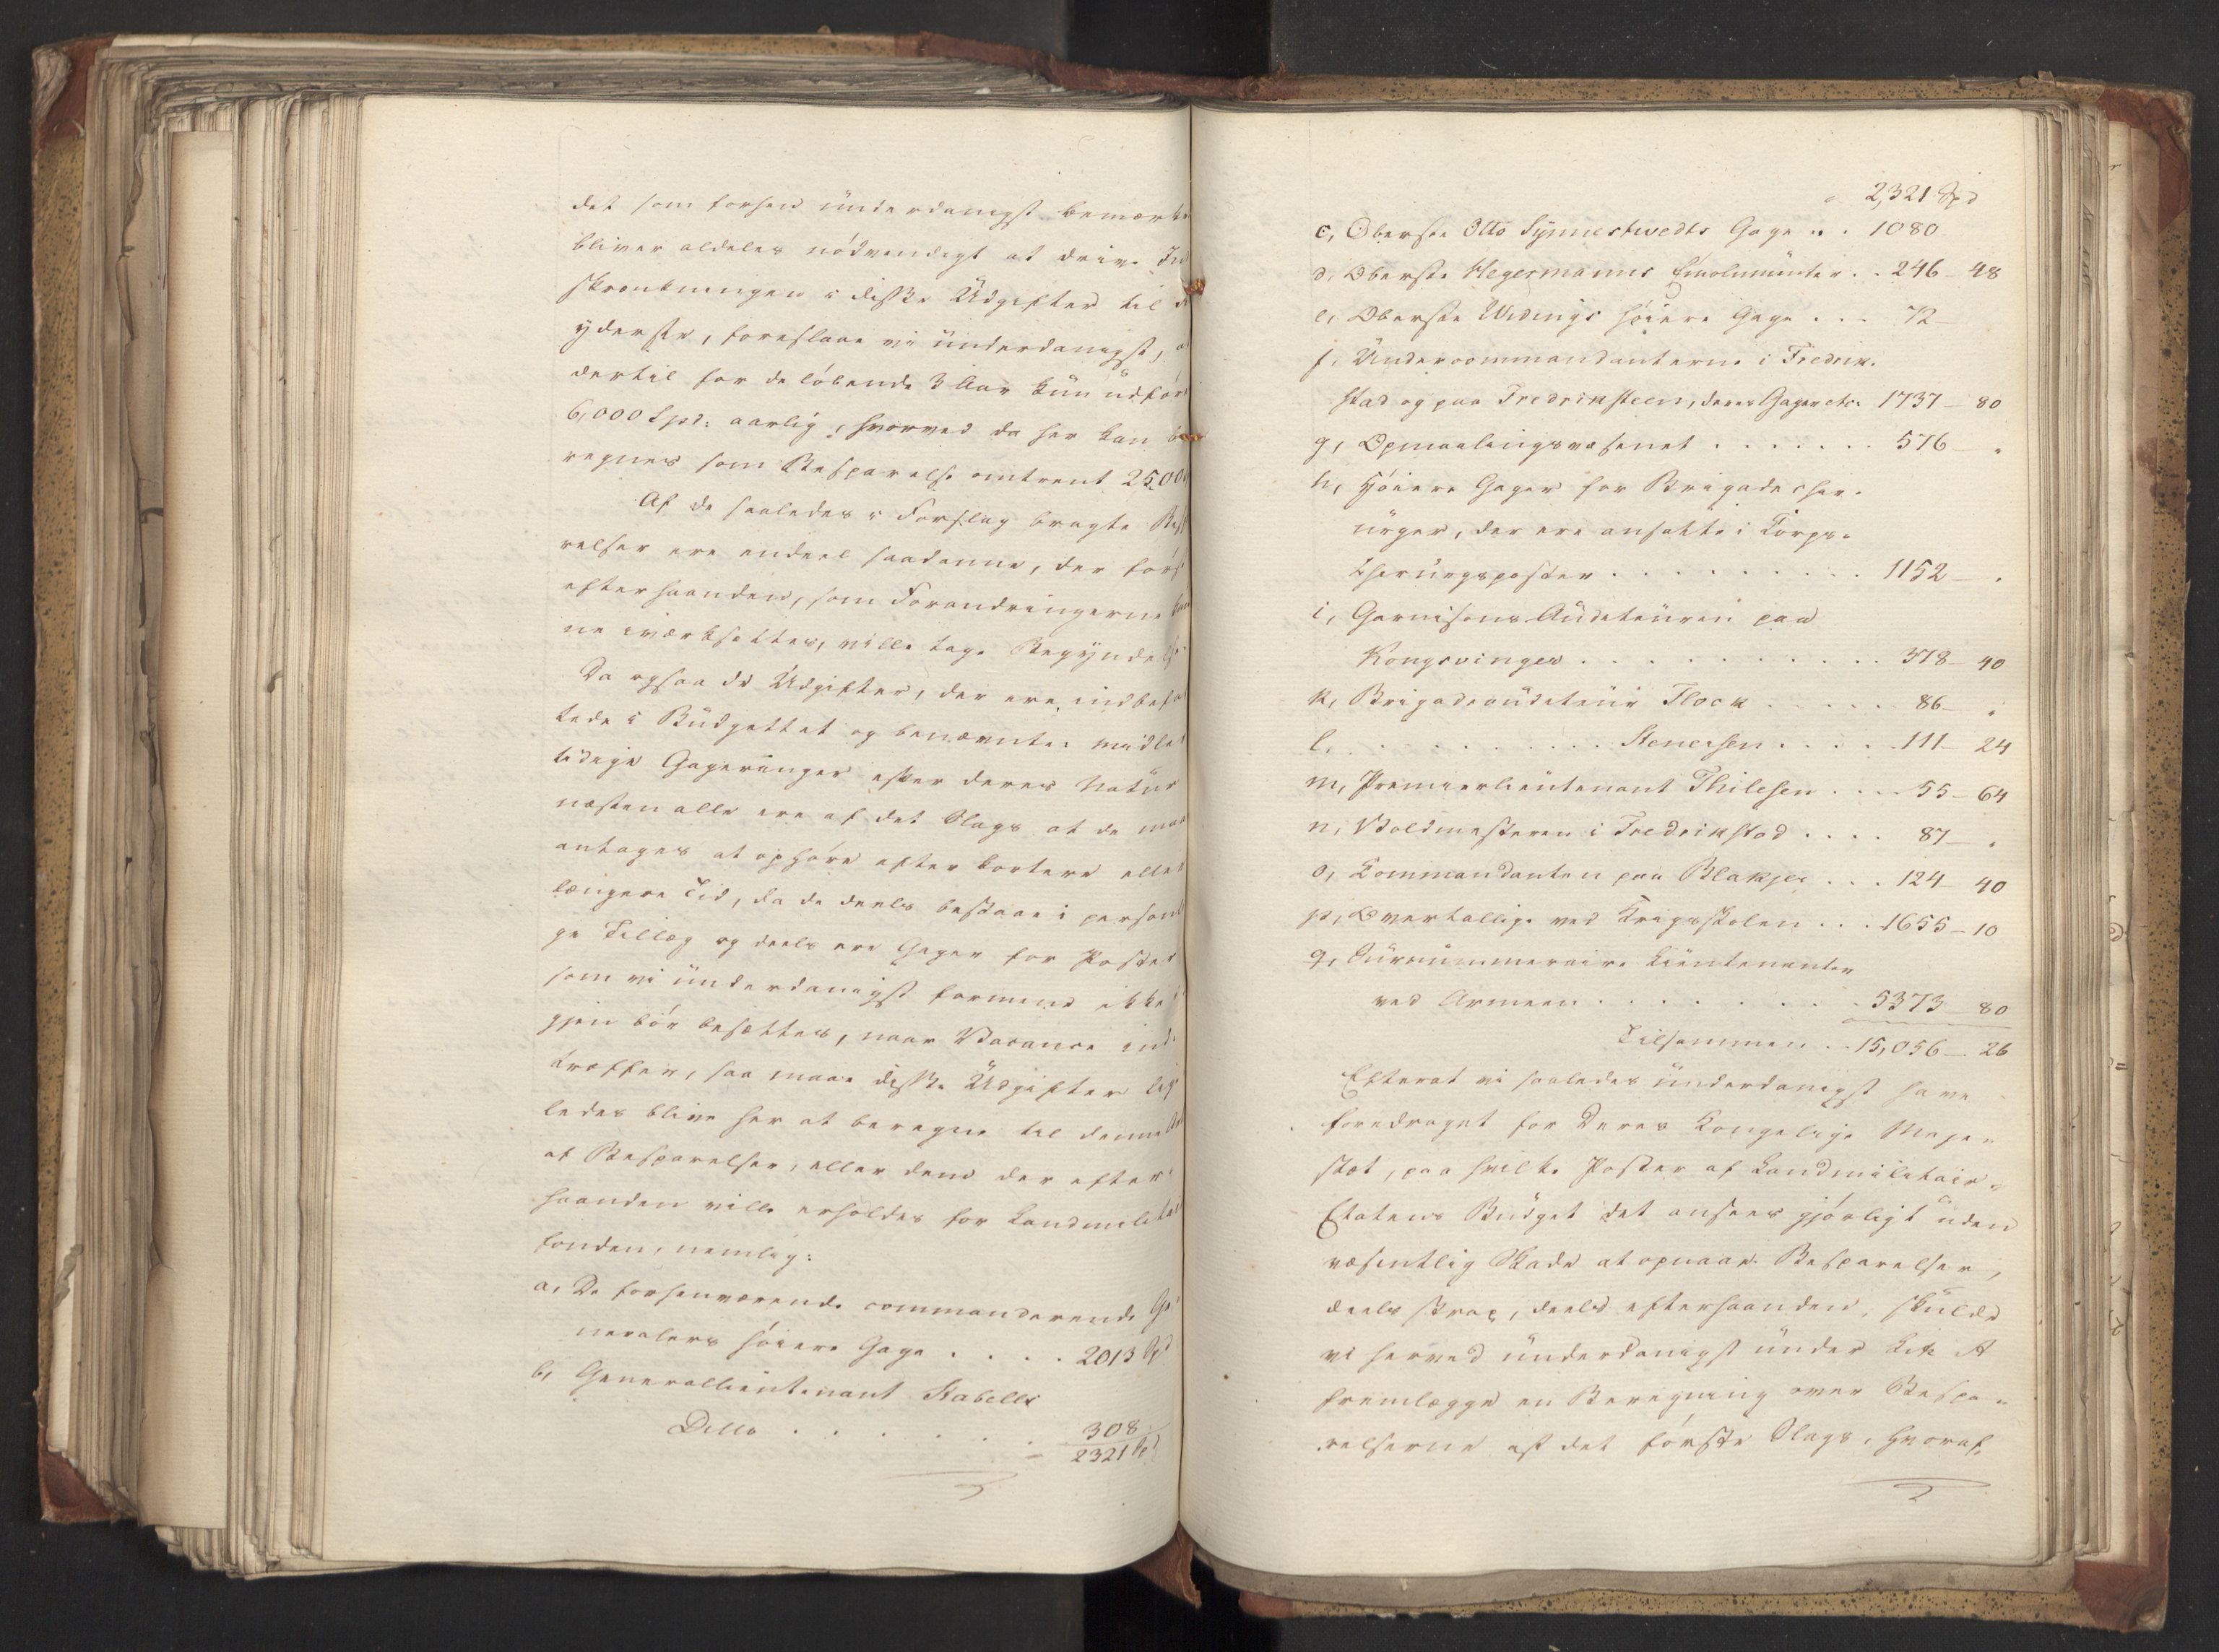 det som forhen underdanigst bemærket
bliver aldeles nödvendigt at drive Ind
skrænkningen i disse Udgifter til d
yderste, foreslaae vi underdanigst,
dertil for de löbende 3 Aar kun udför
6,000 Spd: aarlig, hvorved da her kan be
regnes som Besparelse omtrent 25,000
Af de saaledes i Forslag bragte Besp
relser ere endeel saadanne, der förs
efterhaanden, som Forandringerne kun
ne iværksættes, ville tage Begyndelse.
Da ogsaa de Udgifter, der ere indbefat
tede i Budgettet og benævnte: midler
tidige Gageringer efter deres Natur
næsten alle ere af det Slags at de maa
antages at ophöre efter kortere eller
længere Tid, da de deels bestaae i personl
ge Tillæg og deels ere Gager for Poster
som vi underdanigst formene ikke i
gjen bör besættes, naar Vacance ind
træffer, saa maae disse Udgifter lig
ledes blive her at beregne til denne
af Besparelser, eller dem der efter
haanden ville erholdes for Landmilitair
fonden, nemlig:
a, De forhenværende commanderende Ge
neralers höiere Gage . . . . 2013 Spd
b, Generallieutenant Stabells
Ditto . . . . . . 308
2321 Spd
2,321 Spd
c, Oberste Otto Synnestvedts Gage . . 1080
d, Oberste Hegermanns Emolumenter . . 246 - 48
e, Oberste Wedings höiere Gage . . . 72 -
f, Undercommandanterne i Fredrik-
stad og paa Fredriksteen, deres Gager etc. 1737 - 80
g, Opmaalingsvæsenet . . . . . . . 576 - "
h, Höiere Gager for Brigadechir-
urger, der ere ansatte i Corps-
Chirurgposter . . . . . . . . . 1152 - "
i, Garnisons Auditeuren paa
Kongsvinger . . . . . . . . . . 378 - 40
k, Brigadeauditeur Flock . . . . . 86 - "
l, . . . . . . . . . Stenersen . . . . 111 - 24
m, Premierlieutenant Thilesen . . . . 55 - 64
n, Voldmesteren i Fredrikstad . . . . 87 - "
o, Commandanten paa Blakjer . . . 124 - 40
p, Overtallige ved Krigsskolen . . . 1655 - 10
q, Surnummeraire Lieutenanter
ved Armeen . . . . . . . . 5373 - 80
Tilsammen . . 15,056 - 26
Efterat vi saaledes underdanigst have
foredraget for Deres Kongelige Maje-
stæt, paa hvilke Poster af Landmilitair-
Etatens Budget det ansees gjörligt uden
væsentlig Skade at opnaae Besparelser,
deels strax, deels efterhaanden, skulde
vi herved underdanigst under Litr A
fremlægge en Beregning over Bespa-
relserne af det förste Slags, hvoraf